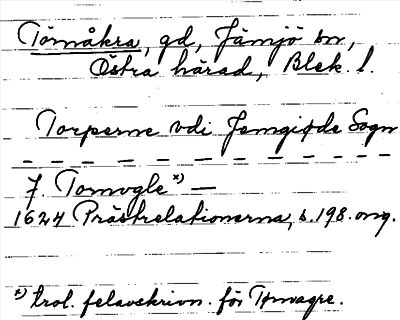 Törnåkra, gd, Jämjö sn,
Östra härad, Blek. l.
Torperne vdi Jemgiøde Sogn
7. Tornvgle x) —
1624 Prästrelationerna, s. 198. omg.
x) trol. felavskrivn. för Tornagre.